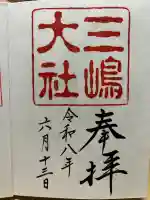 奉拝
三嶋
大社
令和八年
六月十三日